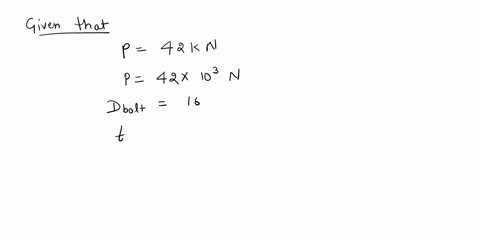 Given that
P = 42 kN
P = 42 × 10³ N
Dbolt = 16
t